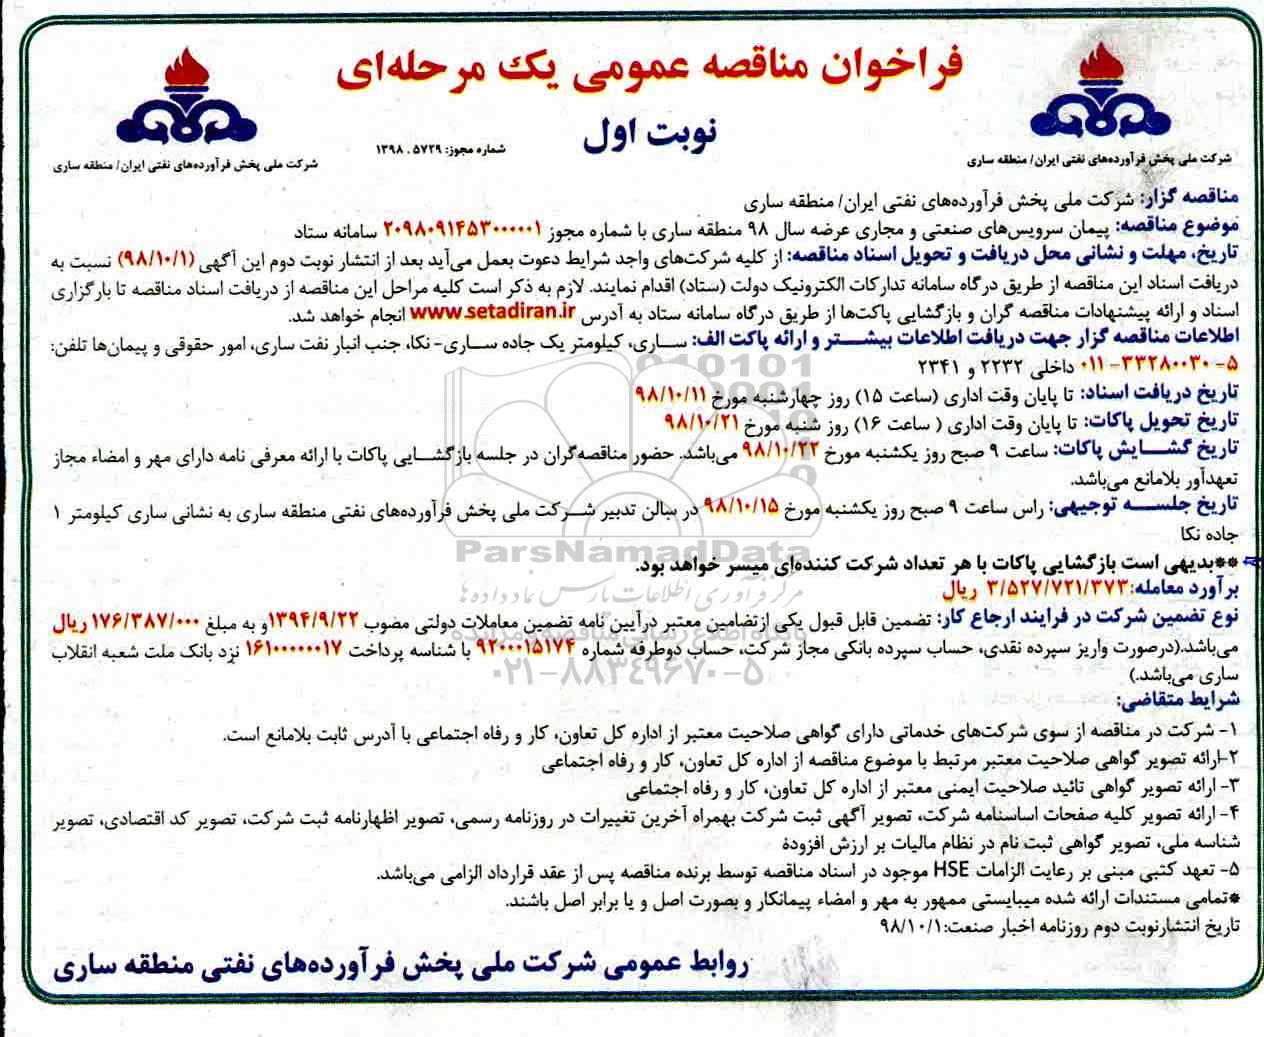 فراخوان مناقصه عمومی یک مرحله‌ای
نوبت اول
شماره مجوز: ۵۷۲۹ . ۱۳۹۸
شرکت ملی پخش فرآورده‌های نفتی ایران/ منطقه ساری
شرکت ملی پخش فرآورده‌های نفتی ایران/ منطقه ساری
مناقصه گزار: شرکت ملی پخش فرآورده‌های نفتی ایران/ منطقه ساری
موضوع مناقصه: پیمان سرویس‌های صنعتی و مجاری عرضه سال ۹۸ منطقه ساری با شماره مجوز ۲۰۹۸۰۹۱۴۵۳۰۰۰۰۰۱ سامانه ستاد
تاریخ، مهلت و نشانی محل دریافت و تحویل اسناد مناقصه: از کلیه شرکت‌های واجد شرایط دعوت بعمل می‌آید بعد از انتشار نوبت دوم این آگهی (۹۸/۱۰/۱) نسبت به
دریافت اسناد این مناقصه از طریق درگاه سامانه تدارکات الکترونیک دولت (ستاد) اقدام نمایند. لازم به ذکر است کلیه مراحل این مناقصه از دریافت اسناد مناقصه تا بارگزاری
اسناد و ارائه پیشنهادات مناقصه گران و بازگشایی پاکت‌ها از طریق درگاه سامانه ستاد به آدرس www.setadiran.ir انجام خواهد شد.
اطلاعات مناقصه گزار جهت دریافت اطلاعات بیشتر و ارائه پاکت الف: ساری، کیلومتر یک جاده ساری- نکا، جنب انبار نفت ساری، امور حقوقی و پیمان‌ها تلفن:
۵- ۳۳۲۸۰۰۳۰-۰۱۱ داخلی ۲۲۳۲ و ۲۳۴۱
تاریخ دریافت اسناد: تا پایان وقت اداری (ساعت ۱۵) روز چهارشنبه مورخ ۹۸/۱۰/۱۱
تاریخ تحویل پاکات: تا پایان وقت اداری ( ساعت ۱۶) روز شنبه مورخ ۹۸/۱۰/۲۱
تاریخ گشایش پاکات: ساعت ۹ صبح روز یکشنبه مورخ ۹۸/۱۰/۲۲ می‌باشد. حضور مناقصه‌گران در جلسه بازگشایی پاکات با ارائه معرفی نامه دارای مهر و امضاء مجاز
تعهدآور بلامانع می‌باشد.
تاریخ جلسه توجیهی: راس ساعت ۹ صبح روز یکشنبه مورخ ۹۸/۱۰/۱۵ در سالن تدبیر شرکت ملی پخش فرآورده‌های نفتی منطقه ساری به نشانی ساری کیلومتر ۱
جاده نکا
**بدیهی است بازگشایی پاکات با هر تعداد شرکت کننده‌ای میسر خواهد بود.
برآورد معامله: ۳/۵۲۷/۷۲۱/۳۷۳ ریال
نوع تضمین شرکت در فرایند ارجاع کار: تضمین قابل قبول یکی ازتضامین معتبر درآیین نامه تضمین معاملات دولتی مصوب ۱۳۹۴/۹/۲۲ و به مبلغ ۱۷۶/۳۸۷/۰۰۰ ریال
می‌باشد.(درصورت واریز سپرده نقدی، حساب سپرده بانکی مجاز شرکت، حساب دوطرفه شماره ۹۲۰۰۰۱۵۱۷۴ با شناسه پرداخت ۱۶۱۰۰۰۰۰۰۱۷ نزد بانک ملت شعبه انقلاب
ساری می‌باشد.)
شرایط متقاضی:
۱- شرکت در مناقصه از سوی شرکت‌های خدماتی دارای گواهی صلاحیت معتبر از اداره کل تعاون، کار و رفاه اجتماعی با آدرس ثابت بلامانع است.
۲-ارائه تصویر گواهی صلاحیت معتبر مرتبط با موضوع مناقصه از اداره کل تعاون، کار و رفاه اجتماعی
۳- ارائه تصویر گواهی تائید صلاحیت ایمنی معتبر از اداره کل تعاون، کار و رفاه اجتماعی
۴- ارائه تصویر کلیه صفحات اساسنامه شرکت، تصویر آگهی ثبت شرکت بهمراه آخرین تغییرات در روزنامه رسمی، تصویر اظهارنامه ثبت شرکت، تصویر کد اقتصادی، تصویر
شناسه ملی، تصویر گواهی ثبت نام در نظام مالیات بر ارزش افزوده
۵- تعهد کتبی مبنی بر رعایت الزامات HSE موجود در اسناد مناقصه توسط برنده مناقصه پس از عقد قرارداد الزامی می‌باشد.
*تمامی مستندات ارائه شده میبایستی ممهور به مهر و امضاء پیمانکار و بصورت اصل و یا برابر اصل باشند.
تاریخ انتشارنوبت دوم روزنامه اخبار صنعت:۹۸/۱۰/۱
روابط عمومی شرکت ملی پخش فرآورده‌های نفتی منطقه ساری
ParsNamadData
مرکز فرآوری اطلاعات پارس نماد داده‌ها
پایگاه اطلاع رسانی مناقصه و مزایده
۰۲۱-۸۸۳۴۹۶۷۰-۵